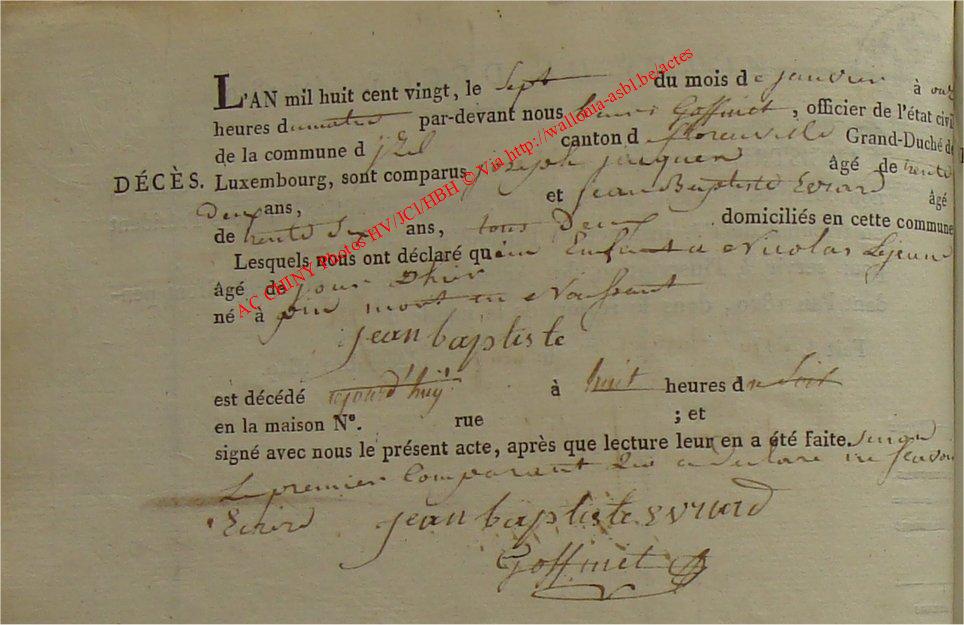 L'AN mil huit cent vingt, le Sept du mois de janvier à onz
heures du matin par-devant nous henri Goffinet, officier de l'état civil
de la commune d' jzel canton d florenville Grand-Duché de
DÉCÈS. Luxembourg, sont comparus joseph jacquem âgé de trente
Deux ans, et jean Baptiste Evrard âgé
de trente Six ans, tous Deux domiciliés en cette commune
Lesquels nous ont déclaré qu'un Enfant a Nicolas Lejeune
âgé de jour Dhier
né à mort en Naissant
jean baptiste
est décédé ajourd'huy à huit heures du Soir
en la maison N°. rue ; et
signé avec nous le présent acte, après que lecture leur en a été faite. Sinon
Le premier Comparant Qui a declaré ne Savoir
Ecrire jean baptiste Evrard
Goffinet
AC CHINY Photos HV/JCl/HBH © Via http://wallonia-asbl.be/actes